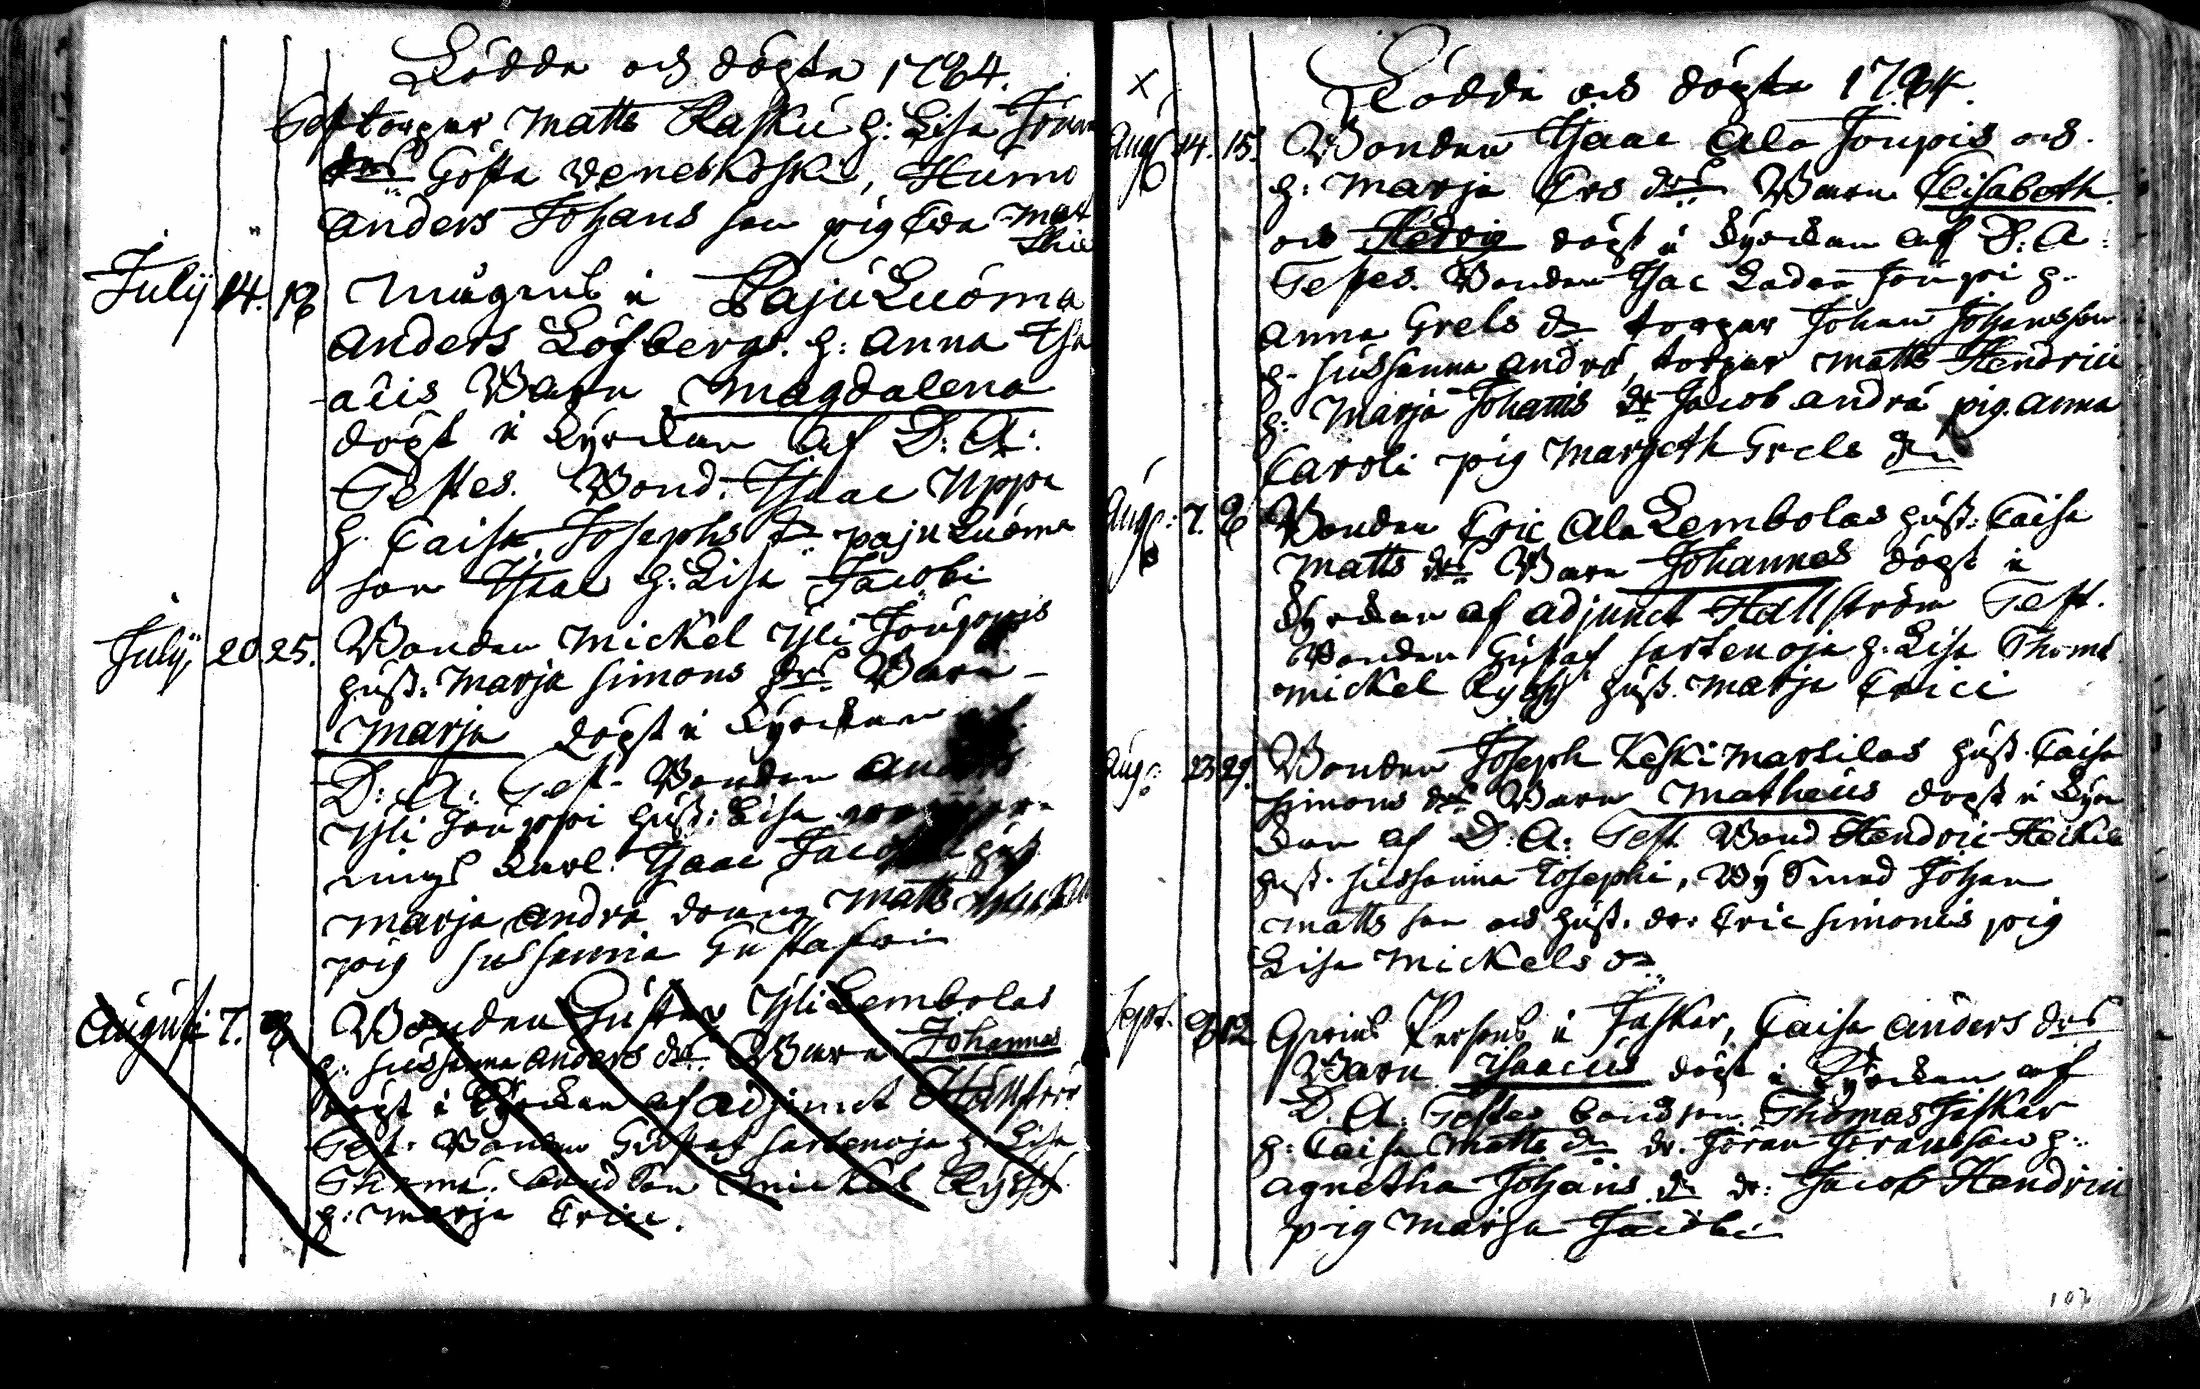 Födde och döpte 1784.
Test torpar Matts Rasku h: Lisa Jöran
drs Gösta Veneskoski,
Anders Johans son pig Eva Mat
thiæ
July 14. 18 i Pajuluoma
Anders Löfbergs. h: Anna Isa
acis Barn Magdalena
döpt i Kyrckan af D: A:
Testes. Bond. Isaac Uppa
h. Caisa Josephs dr pajuluoma
son Isaac h: Lisa Jacobi
July 20 25. Bonden Mickel Yli Jouppis
hust: Marja Simons drs Barn
Marja döpt i Kyrckan af
D: A: Test. Bonden Anders
Yli Jouppi hust: Lisa
Karl. Isaac Jacobi hust
Marja Andræ dräng Matts
pig Susanna Gustafvi
Augusti 7. 8 Bonden Gustav Yli Lembolas
h: Susanna Anders drs Barn Johannes
döpt i Kyrckan af adjunct Hällström
Test. Bonden Gustaf Sartenoja h: Lisa
Thomæ. bondson Mickel Ryssy
h: Marja Erici.
x
Födde och döpte 1784.
Aug 14. 15. Bonden Isaac Ala Joupis och
h: Marja Ers drs Barn Elisabeth
och Hedvig döpt i Kyrckan af D: A:
Testes. Bonden Isac Jouppi h.
Anna Grels dr torpar Johan Johansson
h. Susanna Andræ, torpar Matts Hendrici
h: Marja Johanis dr Jacob Andræ pig. Anna
Caroli pig Margeth Grels dr
Aug: 7. 8 Bonden Eric Ala Lembolas hust: Caisa
Matts drs Barn Johannes döpt i
Kyrckan af adjunct Hällström Test.
Bonden Gustaf Sartenoja h. Lisa Thomæ
Mickel Ryssy hust. Marja Erici
Aug: 23 29. Bonden Joseph Keski Marttilas hust. Caisa
Simons drs Barn Matheus döpt i Kyrc
kan af D: A: Test. Bond Hendric Heikila
hust. Susanna Josephi, By Smed Johan
Matts son och hust. dr: Eric Simonis pig
Lisa Mickels dr
Sept. 9 12 Persons i Jaskar, Caisa Anders drs
Barn Isaacus döpt i Kyrckan af
D. A: Testes bondson Thomas Jaskar
h: Caisa Matts dr dr. Jöran Jöransson h:
Agnetha Johans dr dr: Jacob Hendrici
pig Marja Jacobi
102